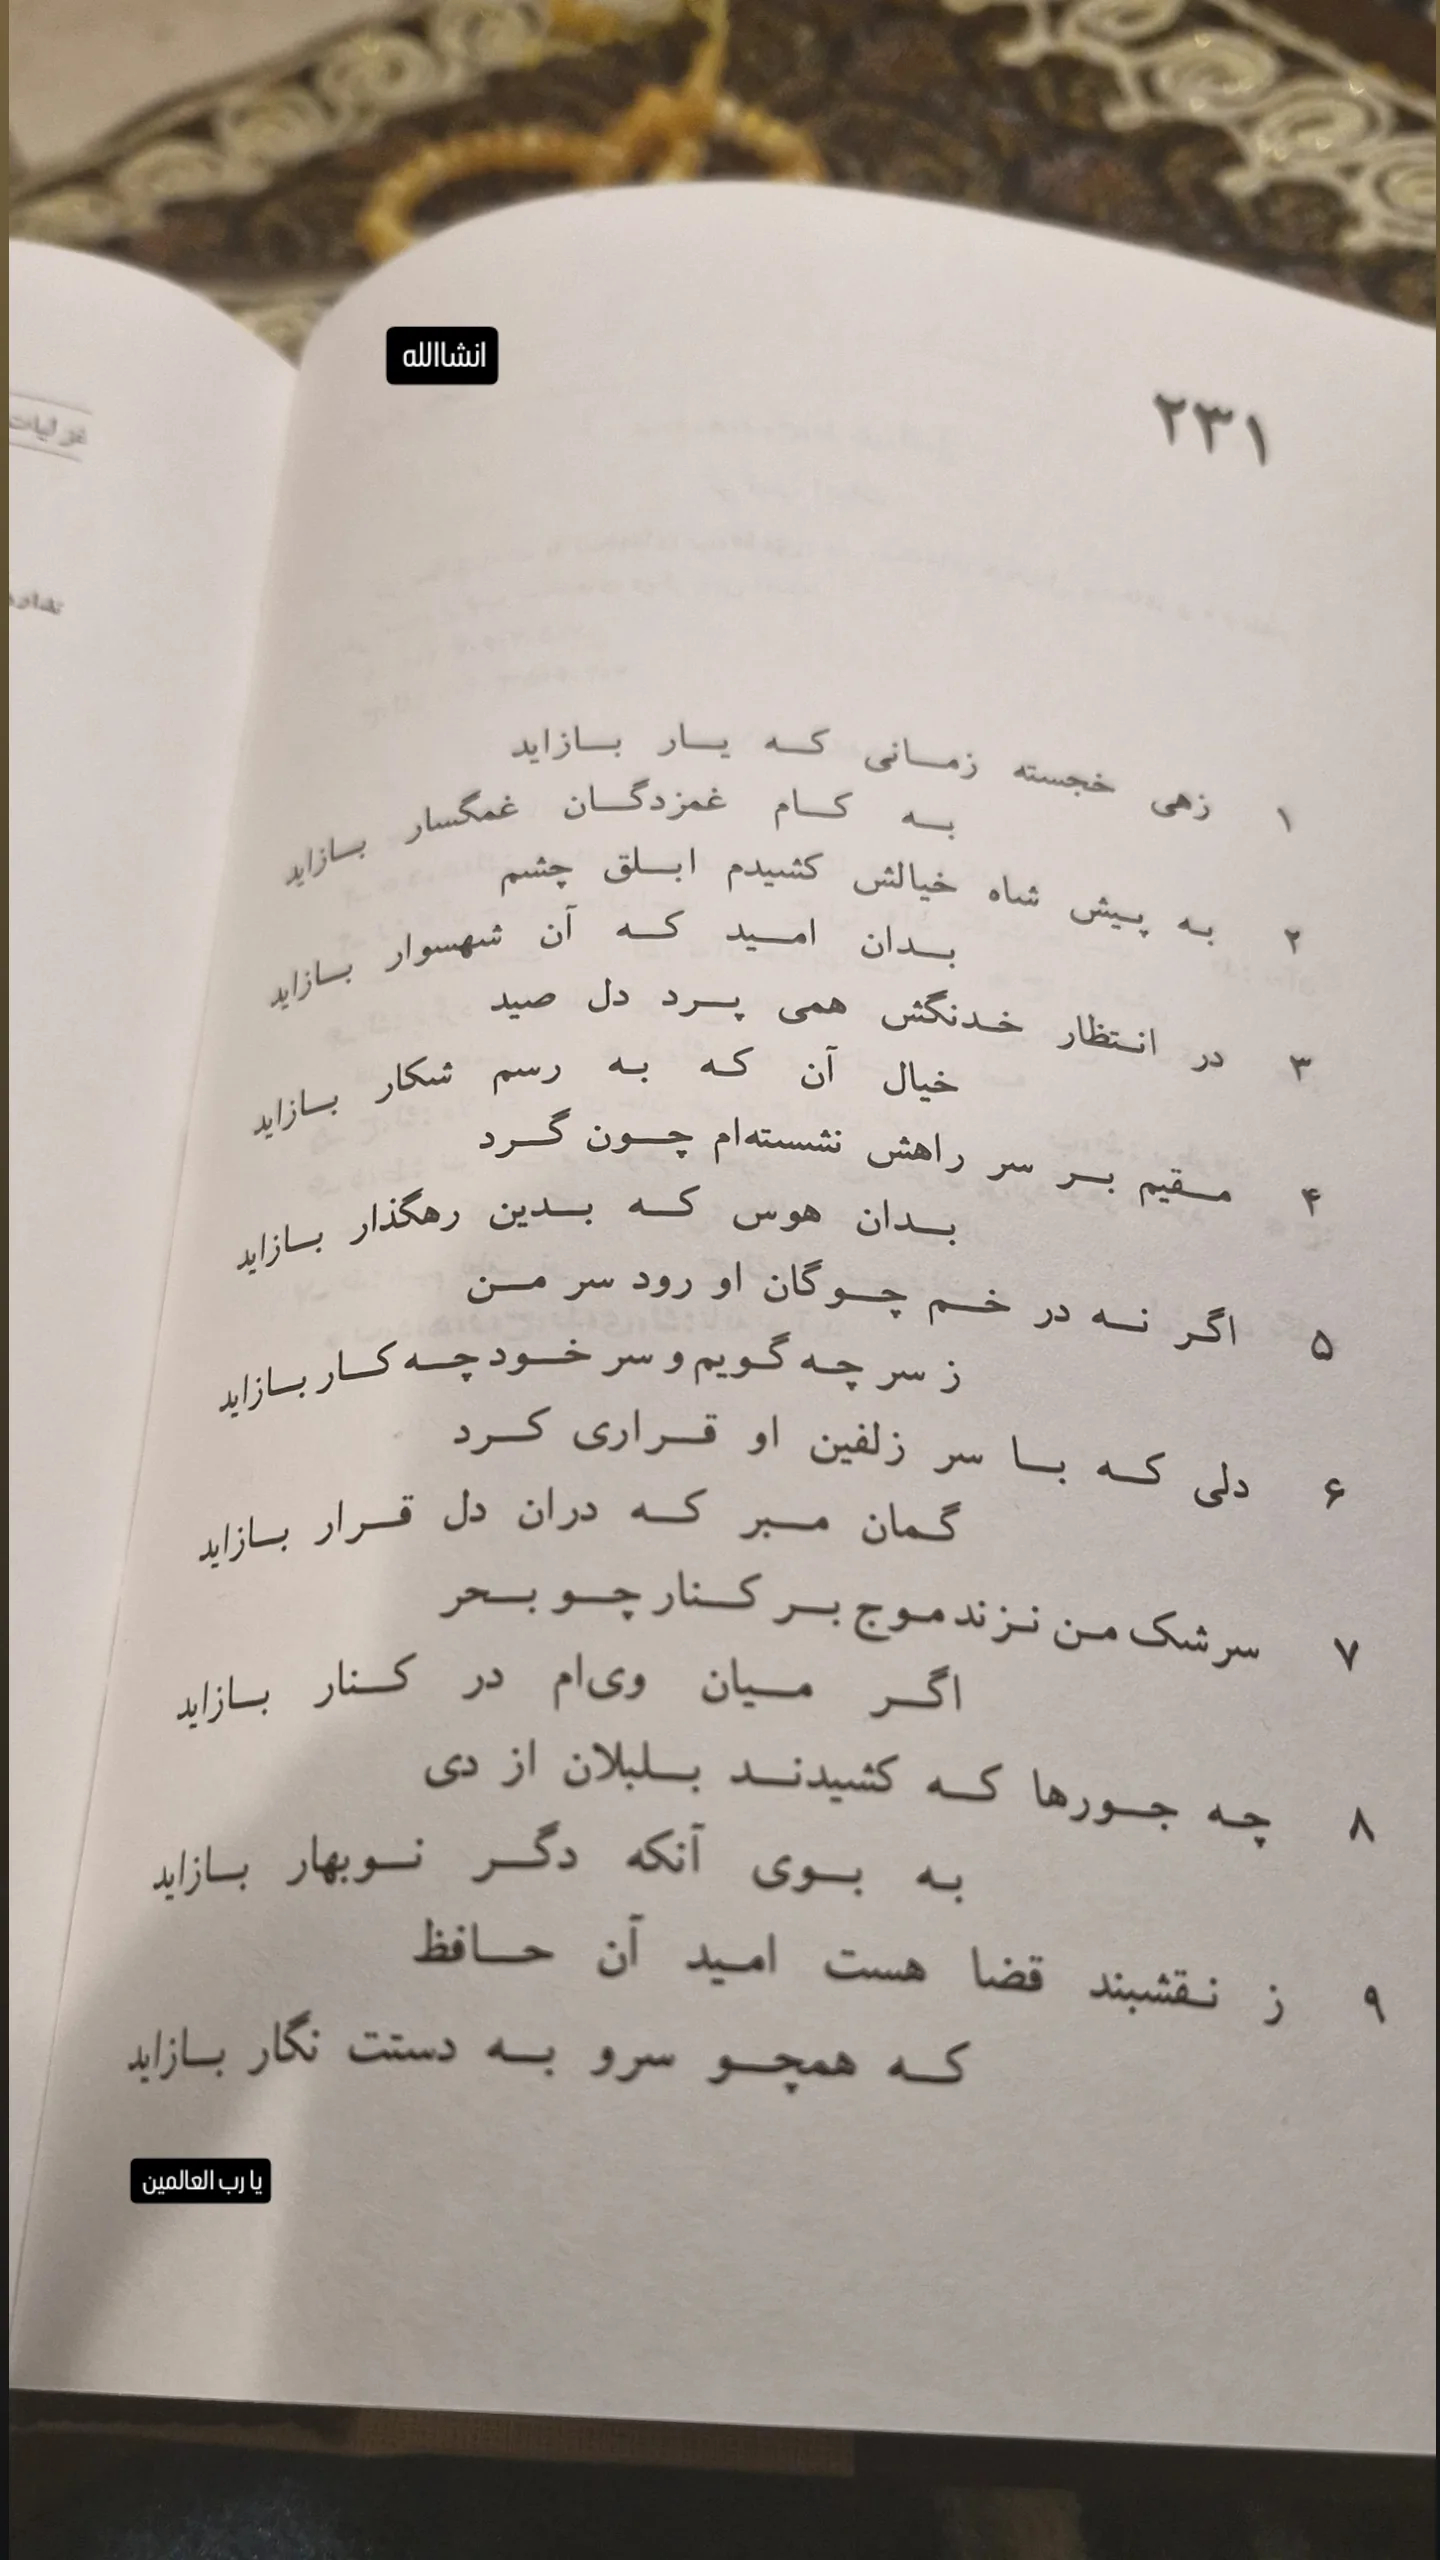 انشاالله
غزلیات
۲۳۱
۱ زهی خجسته زمانی که یار بازاید
به کام غمزدگان غمگسار بازاید
۲ به پیش شاه خیالش کشیدم ابلق چشم
بدان امید که آن شهسوار بازاید
۳ در انتظار خدنگش همی پرد دل صید
خیال آن که به رسم شکار بازاید
۴ مقیم بر سر راهش نشسته‌ام چون گرد
بدان هوس که بدین رهگذار بازاید
۵ اگر نه در خم چوگان او رود سر من
ز سر چه گویم و سر خود چه کار بازاید
۶ دلی که با سر زلفین او قراری کرد
گمان مبر که دران دل قرار بازاید
۷ سرشک من نزند موج بر کنار چو بحر
اگر میان وی‌ام در کنار بازاید
۸ چه جورها که کشیدند بلبلان از دی
به بوی آنکه دگر نوبهار بازاید
۹ ز نقشبند قضا هست امید آن حافظ
که همچو سرو به دستت نگار بازاید
یا رب العالمین